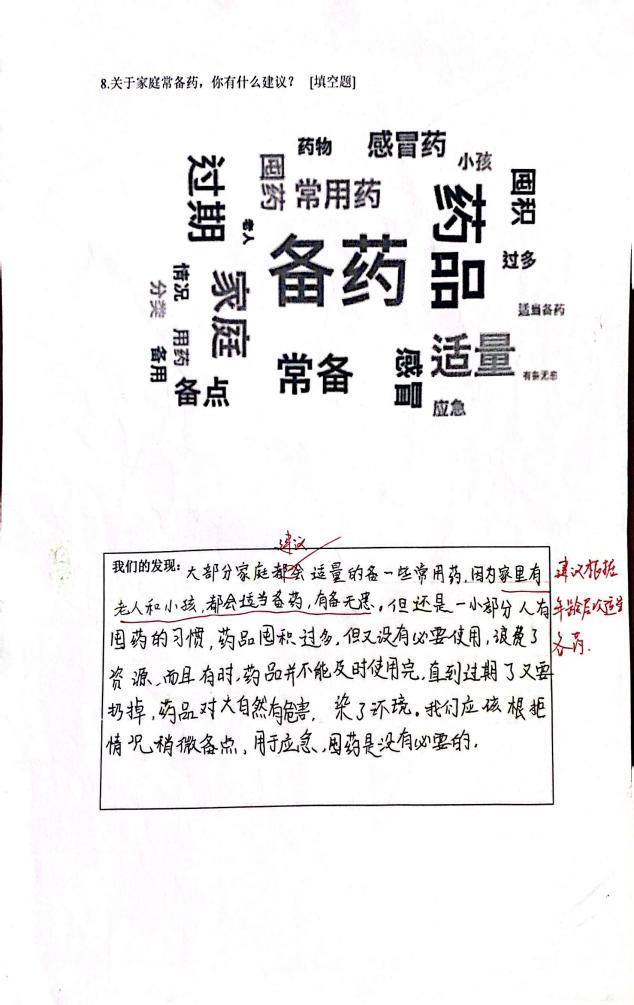 8.关于家庭常备药，你有什么建议？ [填空题]
药物
感冒药
小孩
过期
囤药
常用药
药品
囤积
老人
备药
过多
情况
分类
家庭
适当备药
用药
备用
备点
常备
感冒
适量
有备无患
应急
建议
我们的发现：大部分家庭都会适量的备一些常用药，因为家里有
老人和小孩，都会适当备药，有备无患。但还是一小部分人有
囤药的习惯，药品囤积过多，但又没有必要使用，浪费了
资源，而且有时，药品并不能及时使用完，直到过期了又要
扔掉，药品对大自然有危害，染了环境。我们应该根据
情况稍微备点，用于应急，囤药是没有必要的。
建议根据
年龄层次适当
备药.